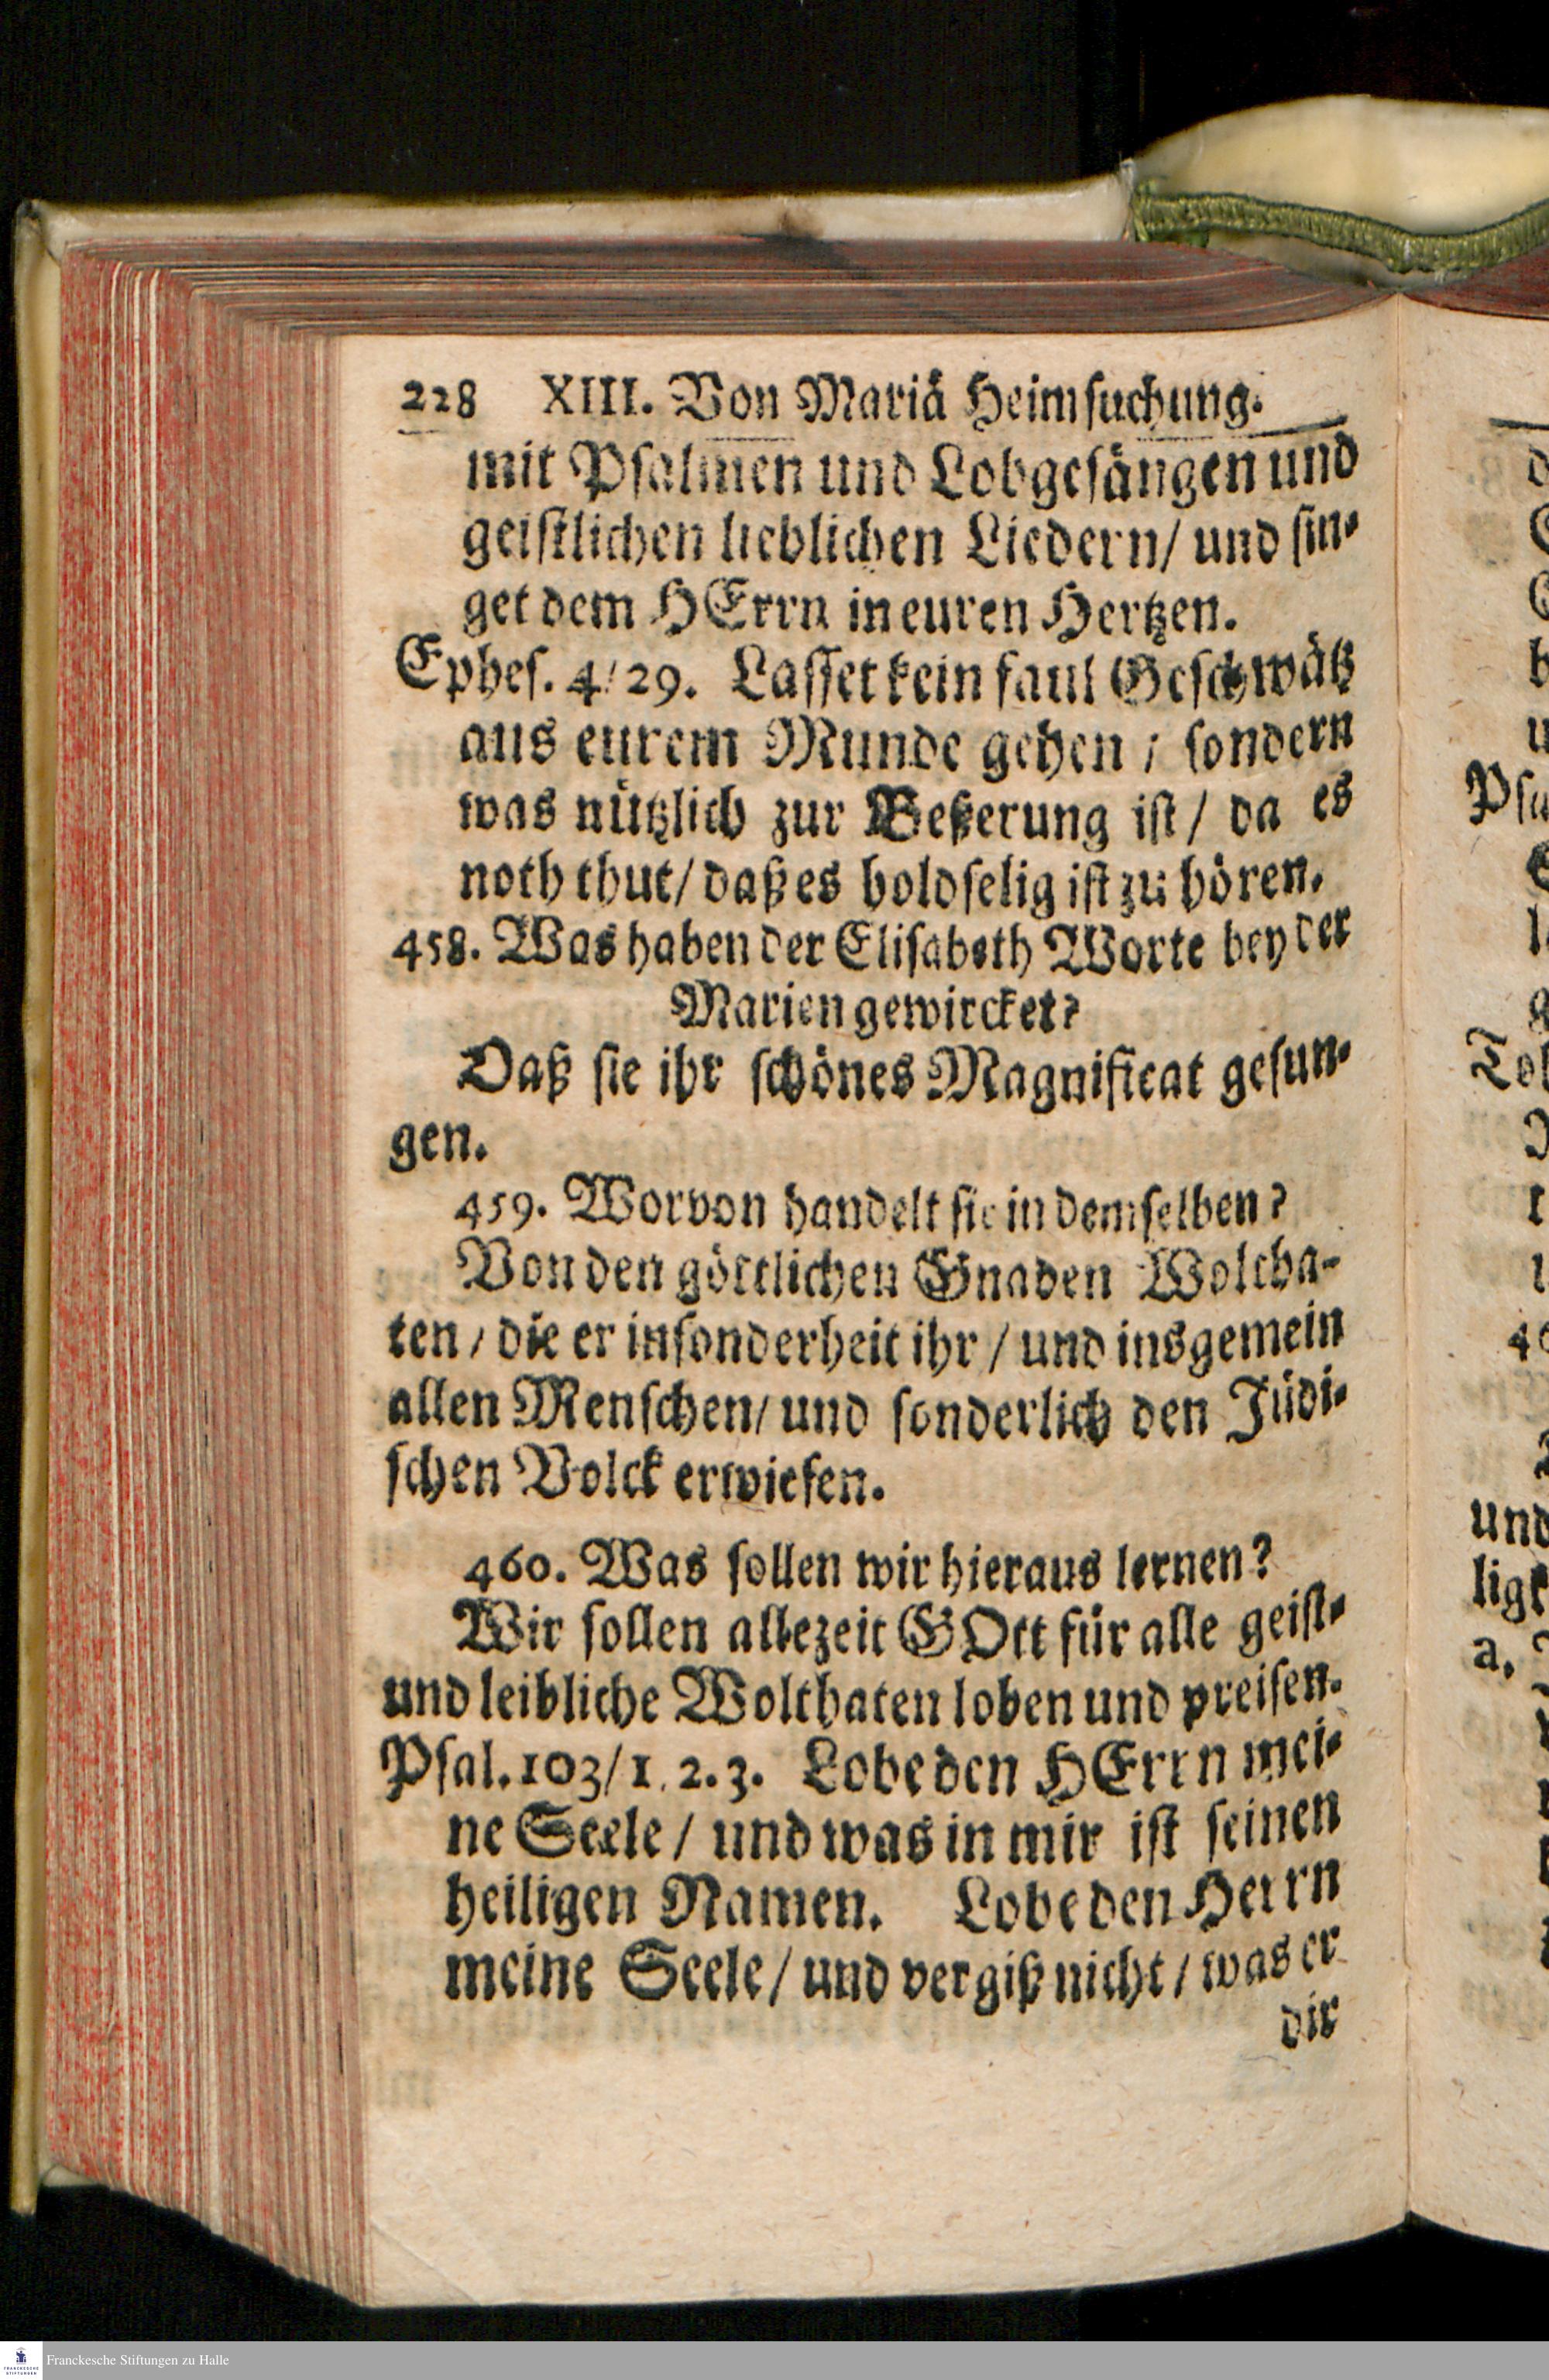 228 XIII. Von Mariä Heimsuchung.
mit Psalmen und Lobgesängen und
geistlichen lieblichen Liedern/ und sin-
get dem HErrn in euren Hertzen.
Ephes. 4/29. Lasset kein faul Geschwätz
aus eurem Munde gehen; sondern
was nützlich zur Beßerung ist/ da es
noth thut/ daß es holdselig ist zu hören.
458. Was haben der Elisabeth Worte bey der
Marien gewircket?
Daß sie ihr schönes Magnificat gesun-
gen.
459. Worvon handelt sie in demselben?
Von den göttlichen Gnaden Woltha-
ten/ die er insonderheit ihr/ und insgemein
allen Menschen/ und sonderlich den Jüdi-
schen Volck erwiesen.
460. Was sollen wir hieraus lernen?
Wir sollen allezeit GOtt für alle geist-
und leibliche Wolthaten loben und preisen.
Psal. 103/1. 2. 3. Lobe den HErrn mei-
ne Seele/ und was in mir ist seinen
heiligen Namen. Lobe den Herrn
meine Seele/ und vergiß nicht/ was er
dir
Psa
Tob
und
a.
FRANCKESCHE STIFTUNGEN
Franckesche Stiftungen zu Halle